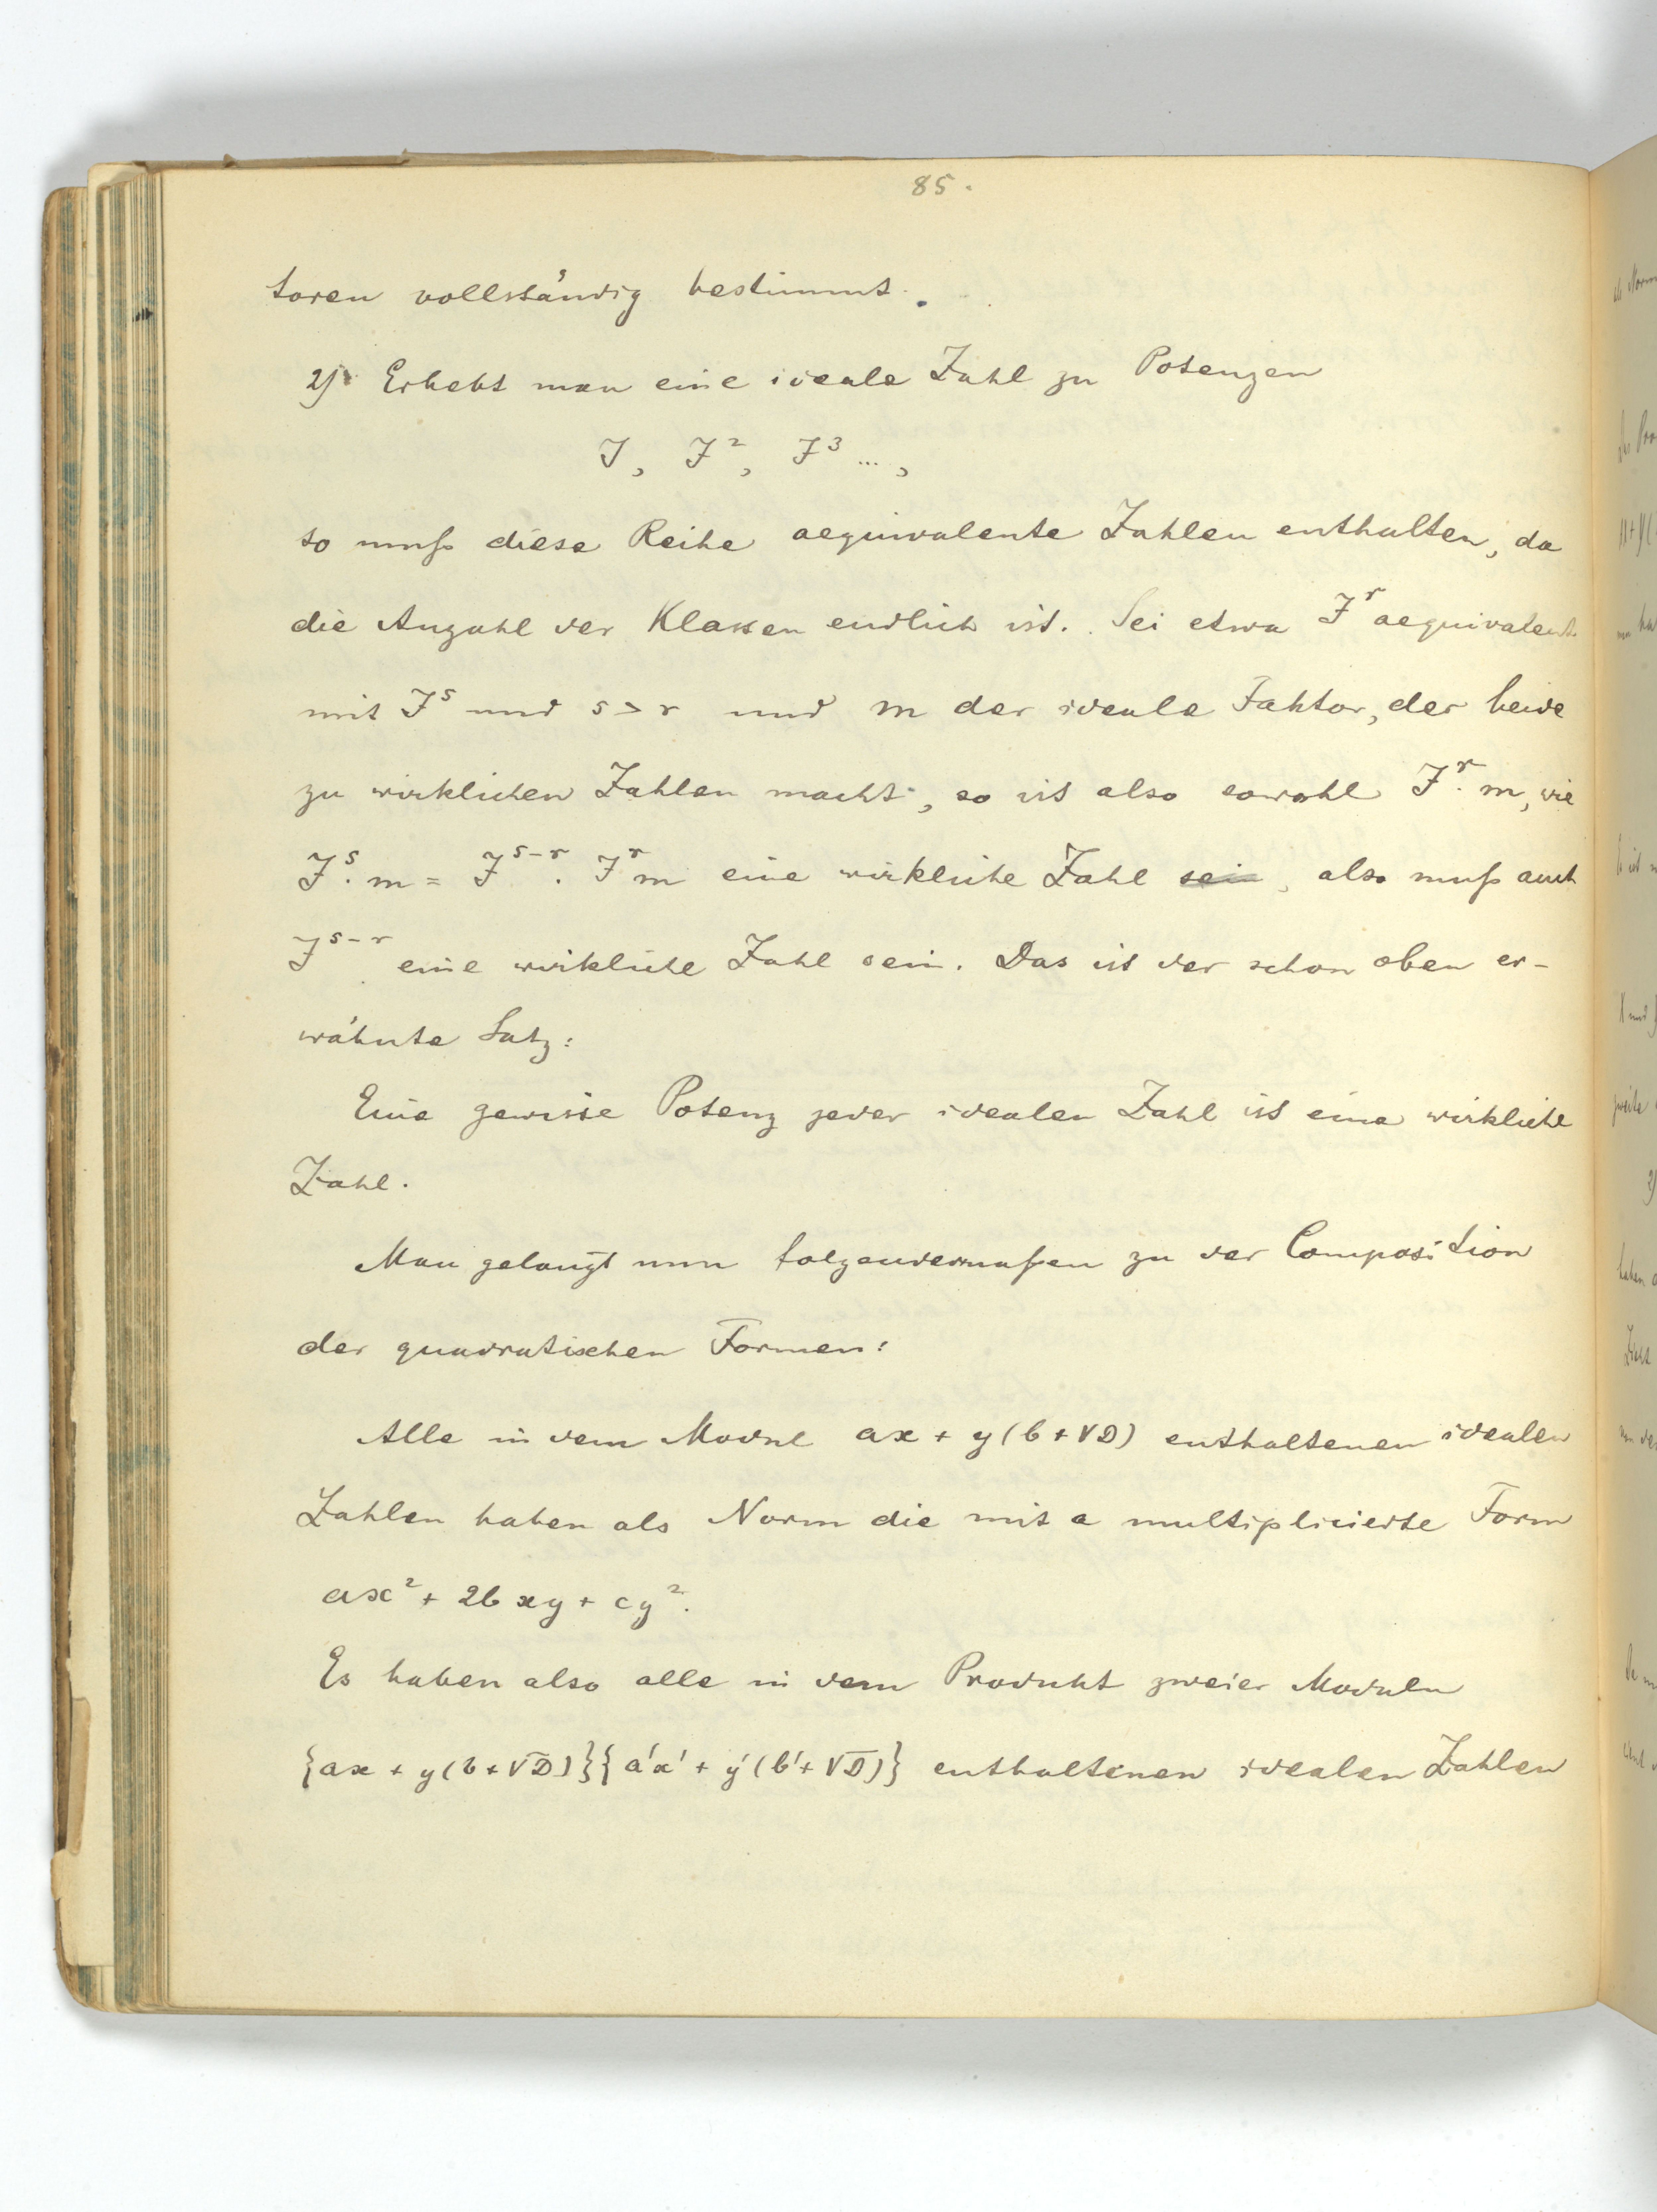 85.
toren vollständig bestimmt.
2) Erhebt man eine ideale Zahl zu Potenzen
J, J², J³ ...,
so muß diese Reihe aequivalente Zahlen enthalten, da
die Anzahl der Klassen endlich ist. Sei etwa J^r aequivalent
mit J^s und s > r und m der ideale Faktor, der beide
zu wirklichen Zahlen macht, so ist also sowohl J^r. m, wie
J^s. m = J^{s-r}. J^r m eine wirkliche Zahl sein, also muß auch
J^{s-r} eine wirkliche Zahl sein. Das ist der schon oben er-
wähnte Satz:
Eine gewisse Potenz jeder idealen Zahl ist eine wirkliche
Zahl.
Man gelangt nun folgendermaßen zu der Composition
der quadratischen Formen:
Alle in dem Modul ax + y(b + √D) enthaltenen idealen
Zahlen haben als Norm die mit a multiplicierte Form
ax² + 2bxy + cy².
Es haben also alle in dem Produkt zweier Moduln
{ax + y(b + √D)}{a'x' + y'(b' + √D)} enthaltenen idealen Zahlen